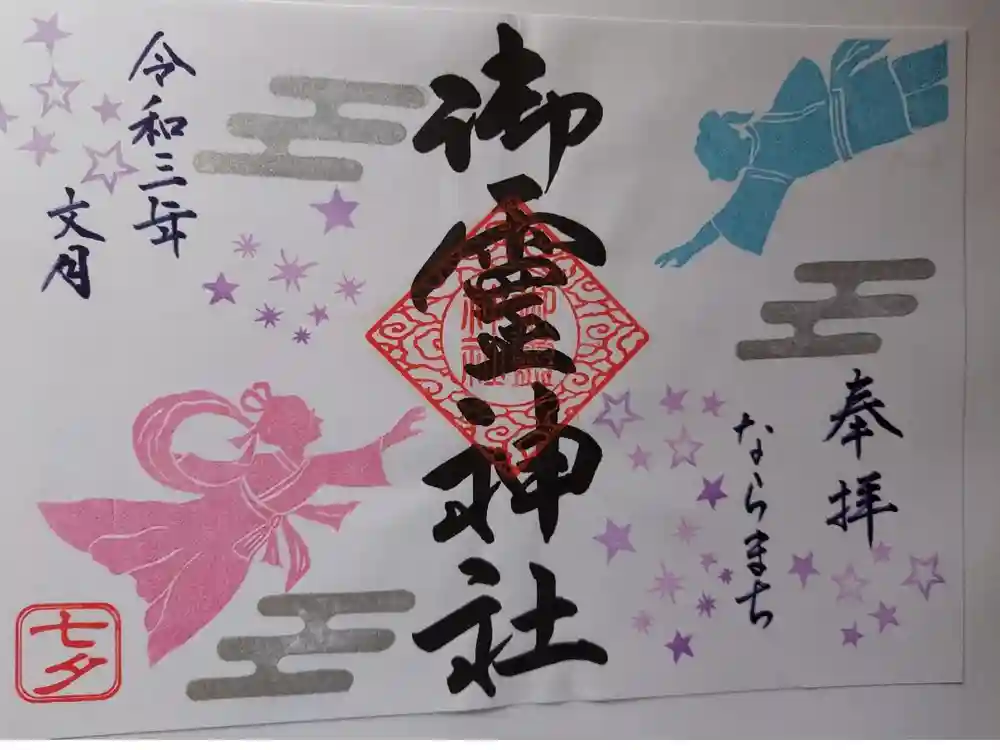 奉拝
ならまち
御霊神社
令和三年
文月
七夕